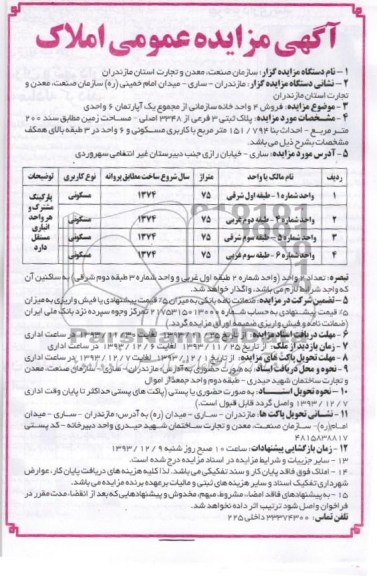 آگهی مزایده عمومی املاک
۱ - نام دستگاه مزایده گزار: سازمان صنعت، معدن و تجارت استان مازندران
۲ - نشانی دستگاه مزایده گزار: مازندران - ساری - میدان امام خمینی (ره) سازمان صنعت، معدن و
تجارت استان مازندران
۳ - موضوع مزایده: فروش ۴ واحد خانه سازمانی از مجموع یک آپارتمان ۶ واحدی
۴ - مشخصات مورد مزایده: پلاک ثبتی ۳ فرعی از ۳۳۴۸ اصلی - مساحت زمین مطابق سند ۲۰۰
متر مربع - احداث بنا ۷۹۴ / ۱۵۱ متر مربع با کاربری مسکونی و ۶ واحد در ۳ طبقه بالای همکف
مشخصات بشرح ذیل می باشد.
۵ - آدرس مورد مزایده: ساری - خیابان رازی جنب دبیرستان غیر انتفاعی سهروردی
ردیف نام مالک یا واحد متراژ سال شروع ساخت مطابق پروانه نوع کاربری توضیحات
۱ واحد شماره ۱ - طبقه اول شرقی ۷۵ ۱۳۷۴ مسکونی
۲ واحد شماره ۴ - طبقه دوم غربی ۷۵ ۱۳۷۴ مسکونی
۳ واحد شماره ۵ - طبقه سوم شرقی ۷۵ ۱۳۷۴ مسکونی
۴ واحد شماره ۶ - طبقه سوم غربی ۷۵ ۱۳۷۴ مسکونی
پارکینگ
مشترک و
هر واحد
انباری
مستقل
دارد
تبصره: تعداد ۲ واحد (واحد شماره ۲ طبقه اول غربی و واحد شماره ۳ طبقه دوم شرقی) به ساکنین آن
که واجد شرایط لازم می باشد، واگذار خواهد شد.
۵ - تضمین شرکت در مزایده: ضمانت نامه بانکی به میزان ۵٪ قیمت پیشنهادی یا فیش واریزی به میزان
۵٪ قیمت پیشنهادی به حساب شماره ۲۱۷۵۳۱۵۰۱۳۰۰۰ تمرکز وجوه سپرده نزد بانک ملی ایران
(ضمانت نامه و فیش واریزی ضمیمه اوراق مزایده گردد).
۶ - مهلت دریافت اسناد مزایده:
۷ - زمان بازدید از ملک: از تاریخ ۲۵ / ۱۱ / ۱۳۹۳ لغایت ۶ / ۱۲ / ۱۳۹۳ در ساعت اداری
۸ - مهلت تحویل پاکت های مزایده: از تاریخ ۱ / ۱۲ / ۱۳۹۳ لغایت ۷ / ۱۲ / ۱۳۹۳ در ساعت اداری
۹ - نحوه و محل دریافت اسناد: به صورت حضوری به آدرس مازندران - ساری - سازمان صنعت، معدن
و تجارت ساختمان شهید حیدری - طبقه دوم واحد جمعدار اموال
۱۰ - نحوه تحویل اسناد: به صورت حضوری یا پستی (پاکت های پستی حداکثر تا پایان وقت اداری
۷ / ۱۲ / ۱۳۹۳ واصل گردد قابل قبول است.)
۱۱ - نشانی تحویل پاکت ها: مازندران - ساری - میدان (ره) به آدرس: مازندران - ساری - میدان
امام(ره) - سازمان صنعت، معدن و تجارت ساختمان شهید حیدری واحد دبیرخانه - کد پستی
۴۸۱۵۸۳۸۸۱۷
۱۲ - زمان بازگشایی پیشنهادات: ساعت ۱۰ صبح روز شنبه ۹ / ۱۲ / ۱۳۹۳
۱۳ - سایر جزییات و شرایط مزایده در اسناد مزایده درج شده است.
۱۴ - املاک فوق فاقد پایان کار و سند تفکیکی می باشد. لذا کلیه هزینه های دریافت پایان کار، عوارض
شهرداری تفکیک اسناد و سایر هزینه های ثبتی و مالیات برعهده برنده مزایده می باشد.
۱۵ - به پیشنهادهای فاقد امضاء، مشروط، مبهم، مخدوش و پیشنهادهایی که بعد از انقضاء مدت مقرر در
فراخوان واصل شود ترتیب اثر داده نخواهد شد.
تلفن تماس: ۳۳۳۷۴۳۰۰ داخلی ۲۲۵